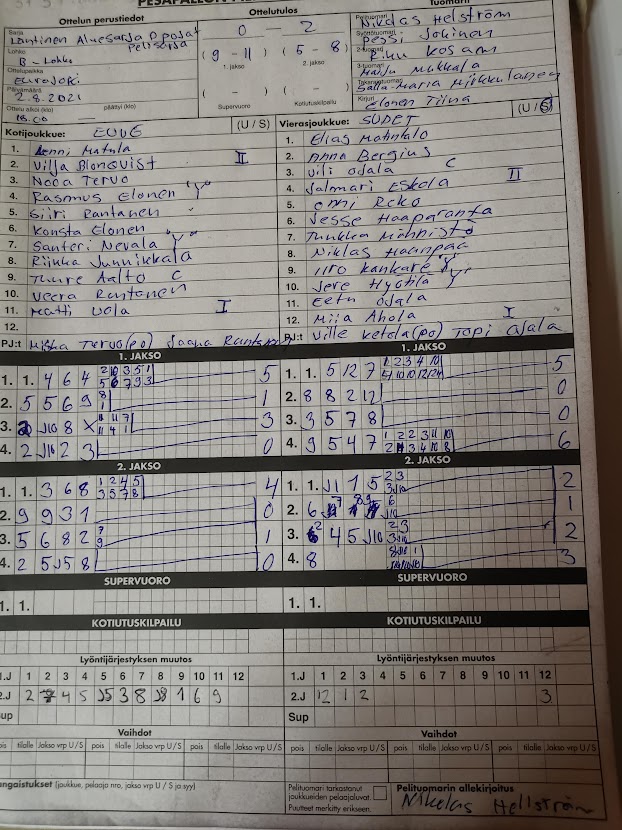 Ottelun perustiedot
Ottelutulos
Sarja
Läntinen Aluesarja D pojat
Pelisarja
0 — 2
Pelituomari Nikolas Hellström
Syöttötuomari Pessi Jokinen
2-tuomari Riku Kosami
3-tuomari Maiju Mukkala
Takarajatuomari Salla-Maria Mikkulainen
Kirjuri Elonen Tiina
Lohko
B - Lohko
(9 - 11) (5 - 8)
1. jakso 2. jakso
Ottelupaikka
Eurajoki
Päivämäärä
2.8.2021
( - ) ( - )
Ottelu alkoi (klo) päättyi (klo)
18.00
Supervuoro Kotiutuskilpailu
Kotijoukkue: EUVE (U / S)
1. Lenni Mattila
2. Vilja Blomqvist II
3. Nooa Tervo
4. Rasmus Elonen
5. Siiri Rantanen
6. Konsta Elonen
7. Santeri Nevala
8. Riikka Junnikkala
9. Tuure Aalto C
10. Veera Rantanen
11. Matti Uola I
12.
PJ:t Miska Tervo(po) Jaana Rantanen
Vierasjoukkue: SUDET (U / S)
1. Elias Mathtalo
2. Anna Bergius
3. Vili Ojala C
4. Jalmari Eskola II
5. Omni Reko
6. Jesse Haaparanta
7. Tuukka Männistö
8. Niklas Haanpää
9. Iiro Kankare
10. Jere Hyötilä
11. Eetu Ojala
12. Mija Ahola I
PJ:t Ville Ketola(po) Topi Ojala
1. JAKSO
1. 1. 4 6 4 5
2. 5 5 6 9 8 1 1
3. J10 8 X 3
4. 2 J10 2 3 0
1. JAKSO
1. 1. 5 12 7 5
2. 8 8 2 12 0
3. 3 5 7 8 0
4. 9 5 4 7 6
2. JAKSO
1. 1. 3 6 8 1 2 4 5 3 5 7 8 4
2. 9 9 3 1 0
3. 5 6 8 2 1
4. 2 5 J5 8 0
2. JAKSO
1. 1. J1 1 5 2
2. 6 1
3. 4 5 J10 2
4. 8 3
SUPERVUORO
1. 1.
SUPERVUORO
1. 1.
KOTIUTUSKILPAILU
KOTIUTUSKILPAILU
Lyöntijärjestyksen muutos
1.J 1 2 3 4 5 6 7 8 9 10 11 12
2.J 2 4 5 J5 3 8 J8 1 6 9
Sup
Lyöntijärjestyksen muutos
1.J 1 2 3 4 5 6 7 8 9 10 11 12
2.J 12 1 2 3
Sup
Vaihdot
pois tilalle Jakso vrp U / S pois tilalle Jakso vrp U / S
Vaihdot
pois tilalle Jakso vrp U / S pois tilalle Jakso vrp U / S
ngaistukset (joukkue, pelaaja nro, jakso vrp U / S ja syy)
Pelituomari tarkastanut
joukkueiden pelaajaluvat.
Puutteet merkitty erikseen.
Pelituomarin allekirjoitus
Nikolas Hellström